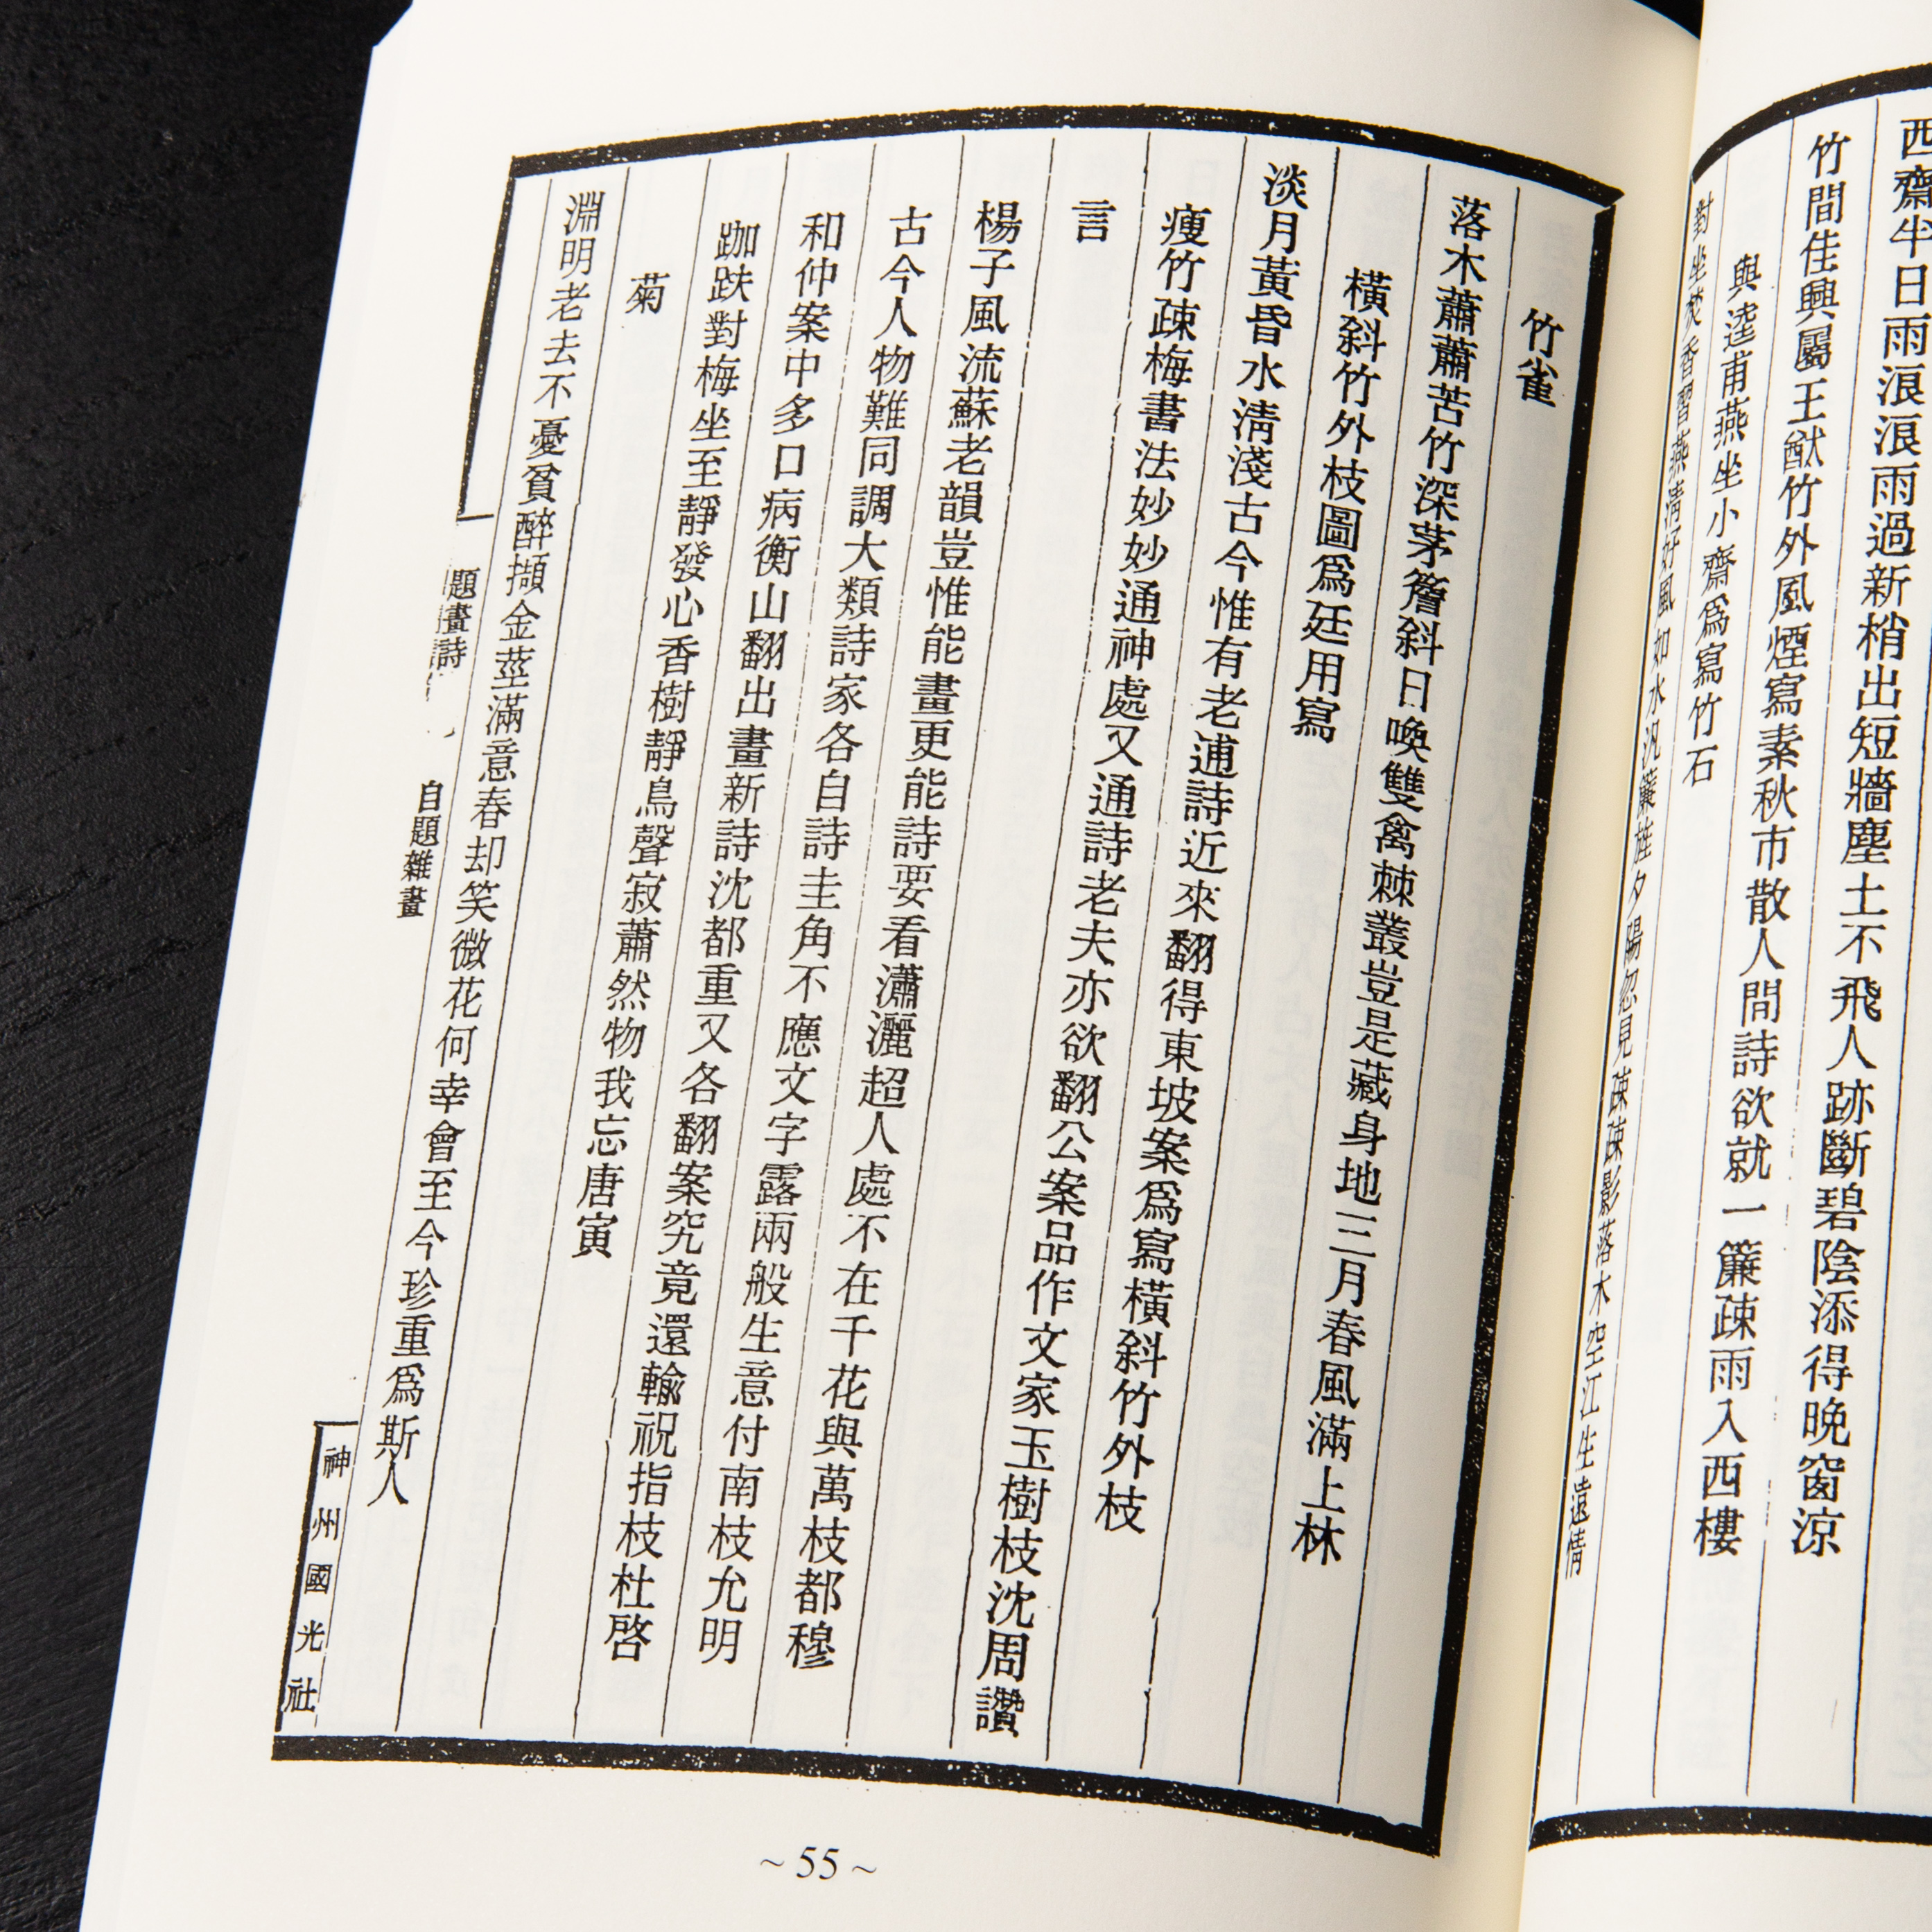 西齋半日雨浪浪雨過新梢出短牆塵土不飛人跡斷碧陰添得晚窗涼
竹間佳興屬王猷竹外風煙寫素秋市散人間詩欲就一簾疎雨入西樓
與逵甫燕坐小齋爲寫竹石
對坐焚香習燕清好風如水汎簾旌夕陽忽見疎疎影落木空江生遠情
竹雀
落木蕭蕭苦竹深茅簷斜日喚雙禽棘叢豈是藏身地三月春風滿上林
橫斜竹外枝圖爲廷用寫
淡月黃昏水淸淺古今惟有老逋詩近來翻得東坡案爲寫橫斜竹外枝
瘦竹疎梅書法妙妙通神處又通詩老夫亦欲翻公案品作文家玉樹枝沈周讚
言
楊子風流蘇老韻豈惟能畫更能詩要看瀟灑超人處不在千花與萬枝都穆
古今人物難同調大類詩家各自詩圭角不應文字露兩般生意付南枝允明
和仲案中多口病衡山翻出畫新詩沈都重又各翻案究竟還輸祝指枝杜啓
跏趺對梅坐至靜發心香樹靜鳥聲寂蕭然物我忘唐寅
菊
淵明老去不憂貧醉擷金莖滿意春却笑微花何幸會至今珍重爲斯人
題畫詩
自題雜畫
神州國光社
~ 55 ~